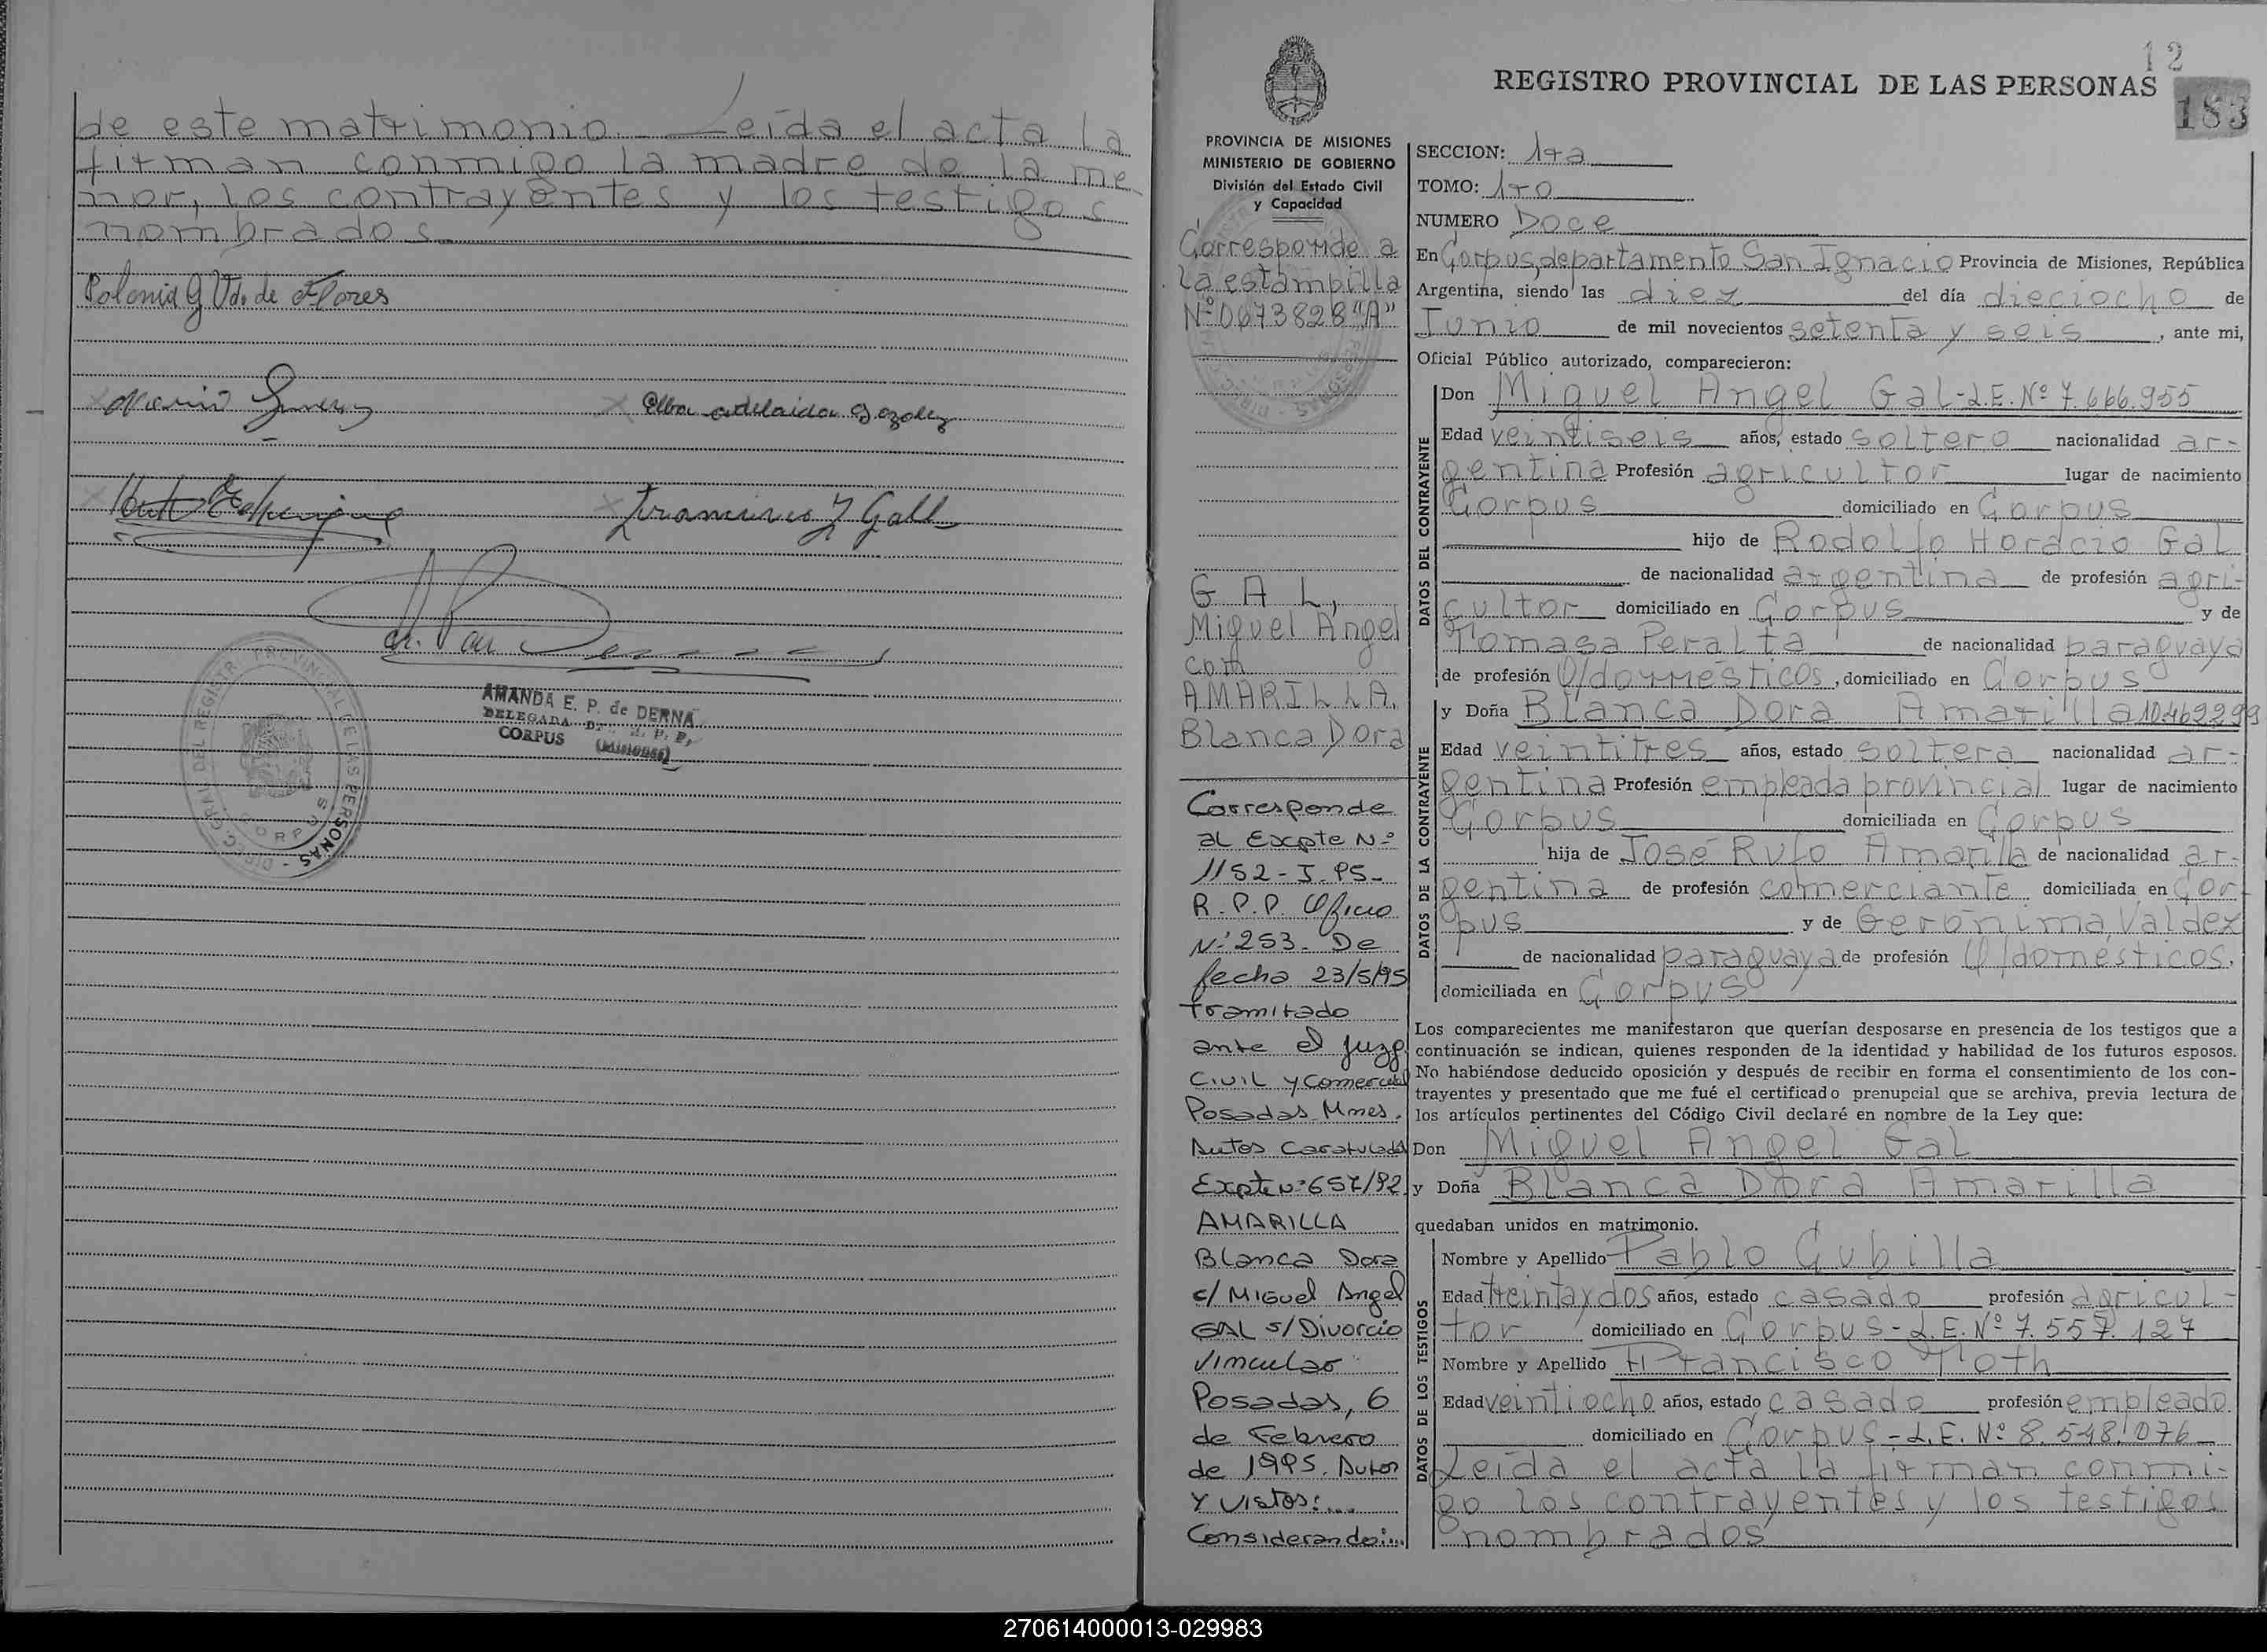 de este matrimonio. Leída el acta la
firman conmigo la madre de la me-
nor, los contrayentes y los testigos
nombrados
Polonia G Vda. de Flores
Elba Adelaida Gozalez
Francisco J Gall
AMANDA E. P. de DERNA
DELEGADA
CORPUS (Misiones)
CORPUS
12
REGISTRO PROVINCIAL DE LAS PERSONAS
183
PROVINCIA DE MISIONES
MINISTERIO DE GOBIERNO
División del Estado Civil
y Capacidad
Corresponde a
la estampilla
Nº 0073828 "A"
GAL,
Miguel Angel
con
AMARILLA,
Blanca Dora
Corresponde
al Expte Nº
1152-I-95-
R.P.P. Oficio
Nº 253. De
fecha 23/5/95
tramitado
ante el Juzg.
Civil y Comercial
Posadas Mnes.
Autos Caratulados
Expte Nº 657/92
AMARILLA
Blanca Dora
c/ Miguel Angel
GAL s/ Divorcio
Vincular
Posadas, 6
de Febrero
de 1995. Autos
Y Vistos:...
Considerando:...
SECCION: 1ra
TOMO: 1ro
NUMERO Doce
En Corpus, departamento San Ignacio Provincia de Misiones, República
Argentina, siendo las diez del día dieciocho de
Junio de mil novecientos setenta y seis, ante mi,
Oficial Público autorizado, comparecieron:
DATOS DEL CONTRAYENTE
Don Miguel Angel Gal-L.E. Nº 7.666.955
Edad veintiseis años, estado soltero nacionalidad ar-
gentina Profesión agricultor lugar de nacimiento
Corpus domiciliado en Corpus
hijo de Rodolfo Horacio Gal
de nacionalidad argentina de profesión agri-
cultor domiciliado en Corpus y de
Tomasa Peralta de nacionalidad paraguaya
de profesión Q/domésticos, domiciliado en Corpus
DATOS DE LA CONTRAYENTE
y Doña Blanca Dora Amarilla 10.462.299
Edad veintitres años, estado soltera nacionalidad ar-
gentina Profesión empleada provincial lugar de nacimiento
Corpus domiciliada en Corpus
hija de José Rufo Amarilla de nacionalidad ar-
gentina de profesión comerciante domiciliada en Cor
pus y de Gerónima Valdez
de nacionalidad paraguaya de profesión Q/domésticos,
domiciliada en Corpus
Los comparecientes me manifestaron que querían desposarse en presencia de los testigos que a
continuación se indican, quienes responden de la identidad y habilidad de los futuros esposos.
No habiéndose deducido oposición y después de recibir en forma el consentimiento de los con-
trayentes y presentado que me fué el certificado prenupcial que se archiva, previa lectura de
los artículos pertinentes del Código Civil declaré en nombre de la Ley que:
Don Miguel Angel Gal
y Doña Blanca Dora Amarilla
quedaban unidos en matrimonio.
DATOS DE LOS TESTIGOS
Nombre y Apellido Pablo Cubilla
Edad treinta y dos años, estado casado profesión agricul-
tor domiciliado en Corpus-L.E. Nº 7.557.127
Nombre y Apellido Francisco Toth
Edad veintiocho años, estado casado profesión empleado
domiciliado en Corpus-L.E. Nº 8.548.076
Leída el acta la firman conmi-
go los contrayentes y los testigos
nombrados
270614000013-029983